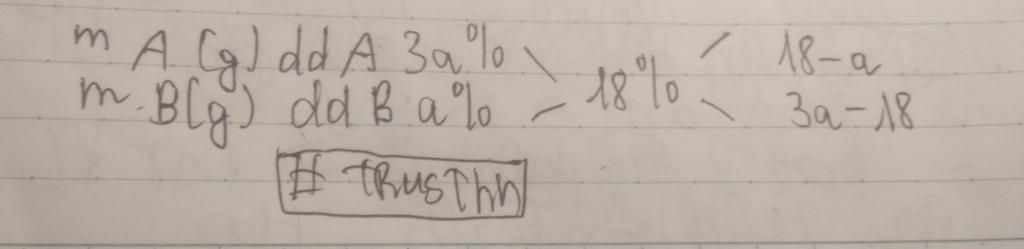 m A (g) dd A 3a% 18-a
18%
m.B(g) dd B a% 3a-18
# TRusThn